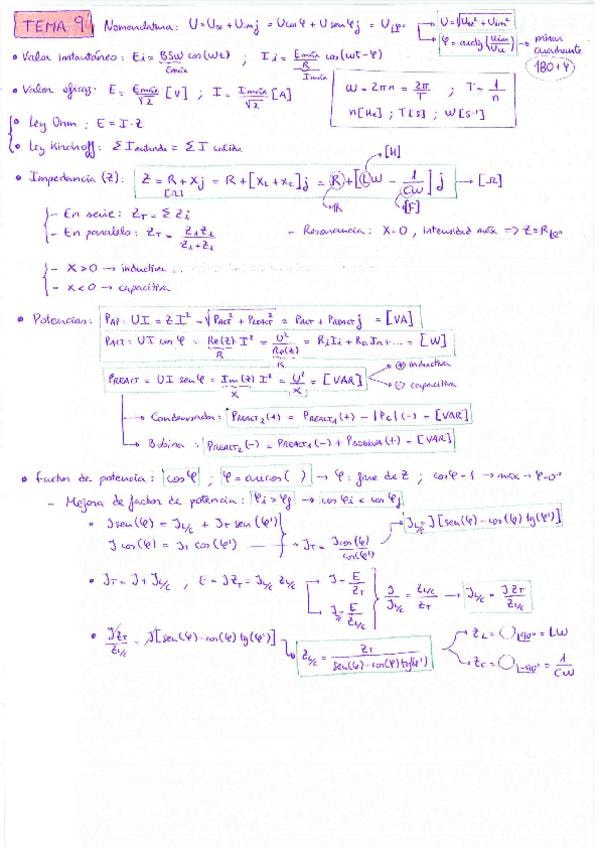 TEMA 9 Nomenclatura: U = URe + UIm j = U cos φ + U sen φ j = U∟φ° → U = √(URe² + UIm²)
→ φ = arctg (UIm/URe) → mirar cuadrante 180+φ
• Valor instantáneo: Ei = BSW cos(wt) ; Ii = Emáx/R cos(wt-φ)
Emáx Imáx
• Valor eficaz: E = Emáx/√2 [V] ; I = Imáx/√2 [A]
W = 2πn = 2π/T ; T = 1/n
n[Hz] ; T[s] ; W[s⁻¹]
• Ley Ohm: E = I·Z
• Ley Kirchoff: Σ I entrada = Σ I salida
• Impedancia (Z): Z = R + Xj = R + [XL + Xc]j = R + [LW - 1/CW] j → [Ω]
[Ω] [H] [F]
- En serie: ZT = Σ Zi
- En paralelo: ZT = Z1Z2/Z1+Z2
- Resonancia: X=0, intensidad máx => Z=R∟0°
- X>0 → inductiva
- X<0 → capacitiva
• Potencias: PAP = UI = Z I² = √(PACT² + PREACT²) = PACT + PREACT j = [VA]
PACT = UI cos φ = Re(Z) I² = U²/Re(Z) = R1I1 + R2I2 + ... = [W]
R R
PREACT = UI sen φ = Im(Z) I² = U²/X = [VAR] → ⊕ inductiva
X → ⊖ capacitiva
→ Condensador: PREACT2(+) = PREACT1(+) - |Pc|(-) = [VAR]
→ Bobina: PREACT2(-) = PREACT1(-) + PBOBINA(+) = [VAR]
• Factor de potencia: cos φ ; φ = arcos( ) → φ: fase de Z ; cos φ = 1 → máx → φ=0°
- Mejora de factor de potencia: φi > φf → cos φi < cos φf
• I sen(φ) = IL/C + IT sen(φ')
I cos(φ) = IT cos(φ') → IT = I cos(φ)/cos(φ') → IL/C = I [sen(φ) - cos(φ) tg(φ')]
• IT = I + IL/C , E = I ZT = IL/C ZL/C → I = E/ZT
→ IL/C = E/ZL/C
I/IL/C = ZL/C/ZT → IL/C = I ZT/ZL/C
• I ZT/ZL/C = I [sen(φ) - cos(φ) tg(φ')] → ZL/C = ZT/sen(φ) - cos(φ) tg(φ')
→ ZL = ◯∟90° = LW
→ ZC = ◯∟-90° = 1/CW